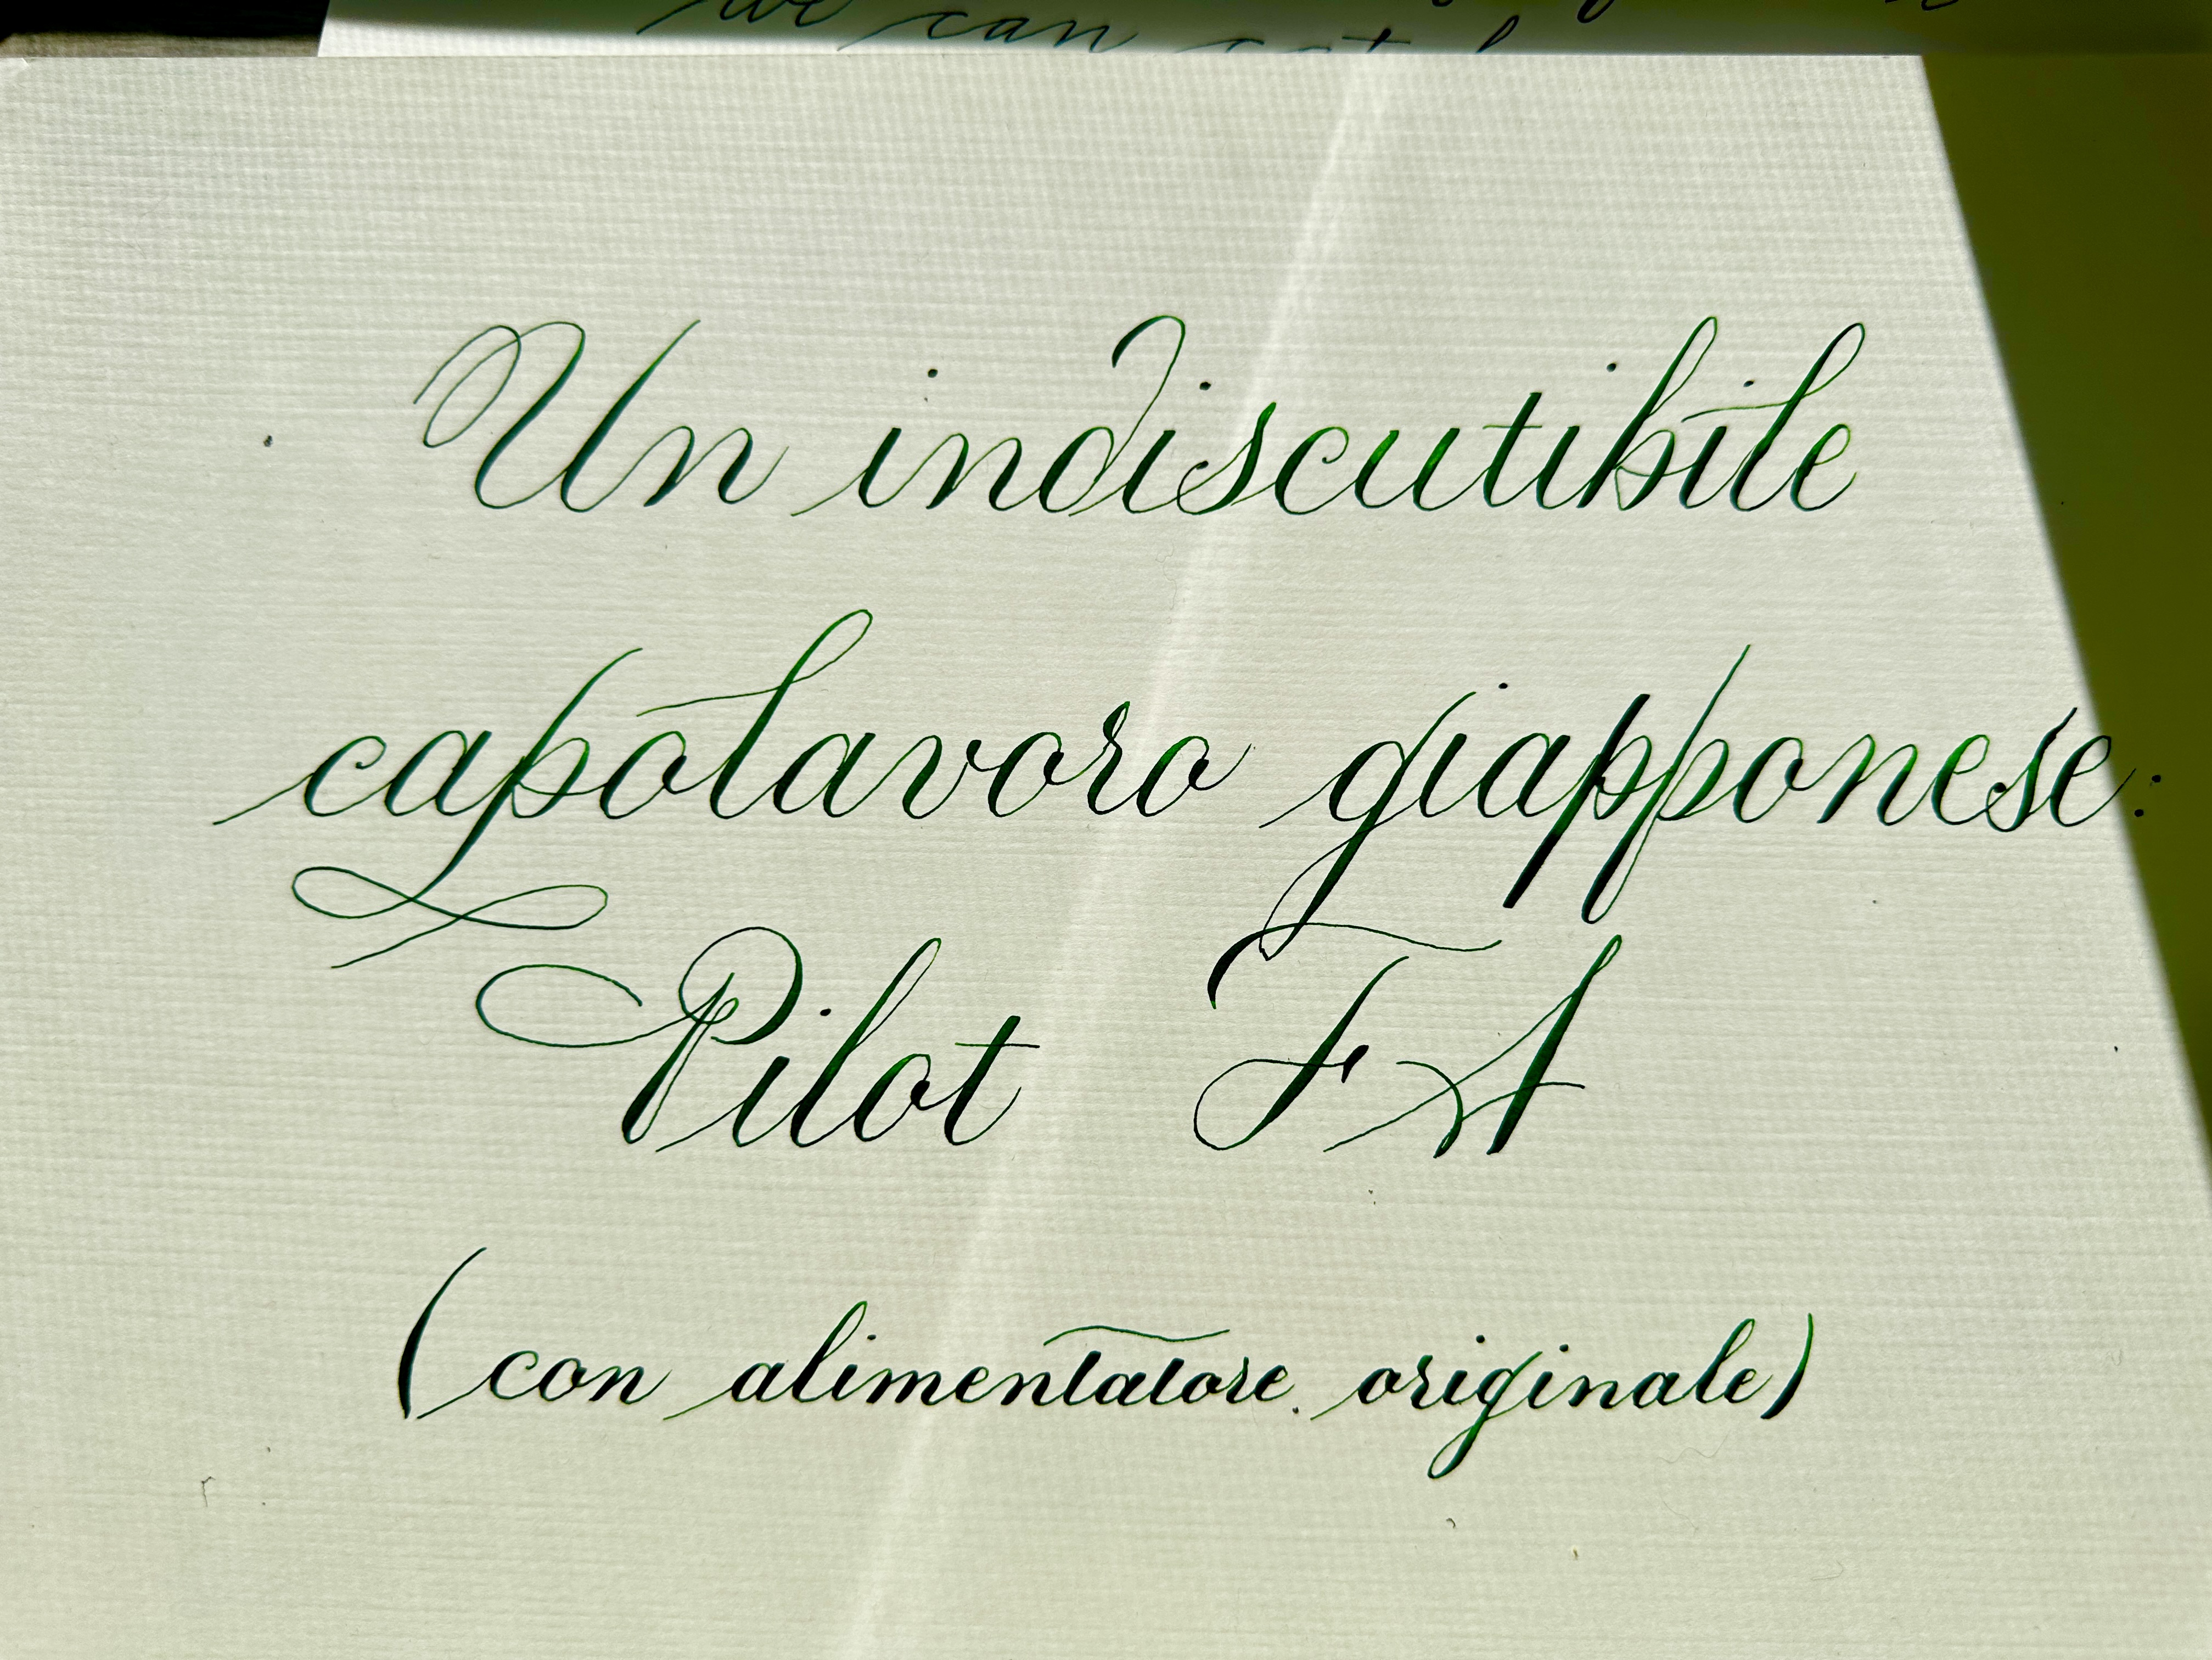 we can get
Un indiscutibile
capolavoro giapponese:
Pilot FA
(con alimentatore. originale)